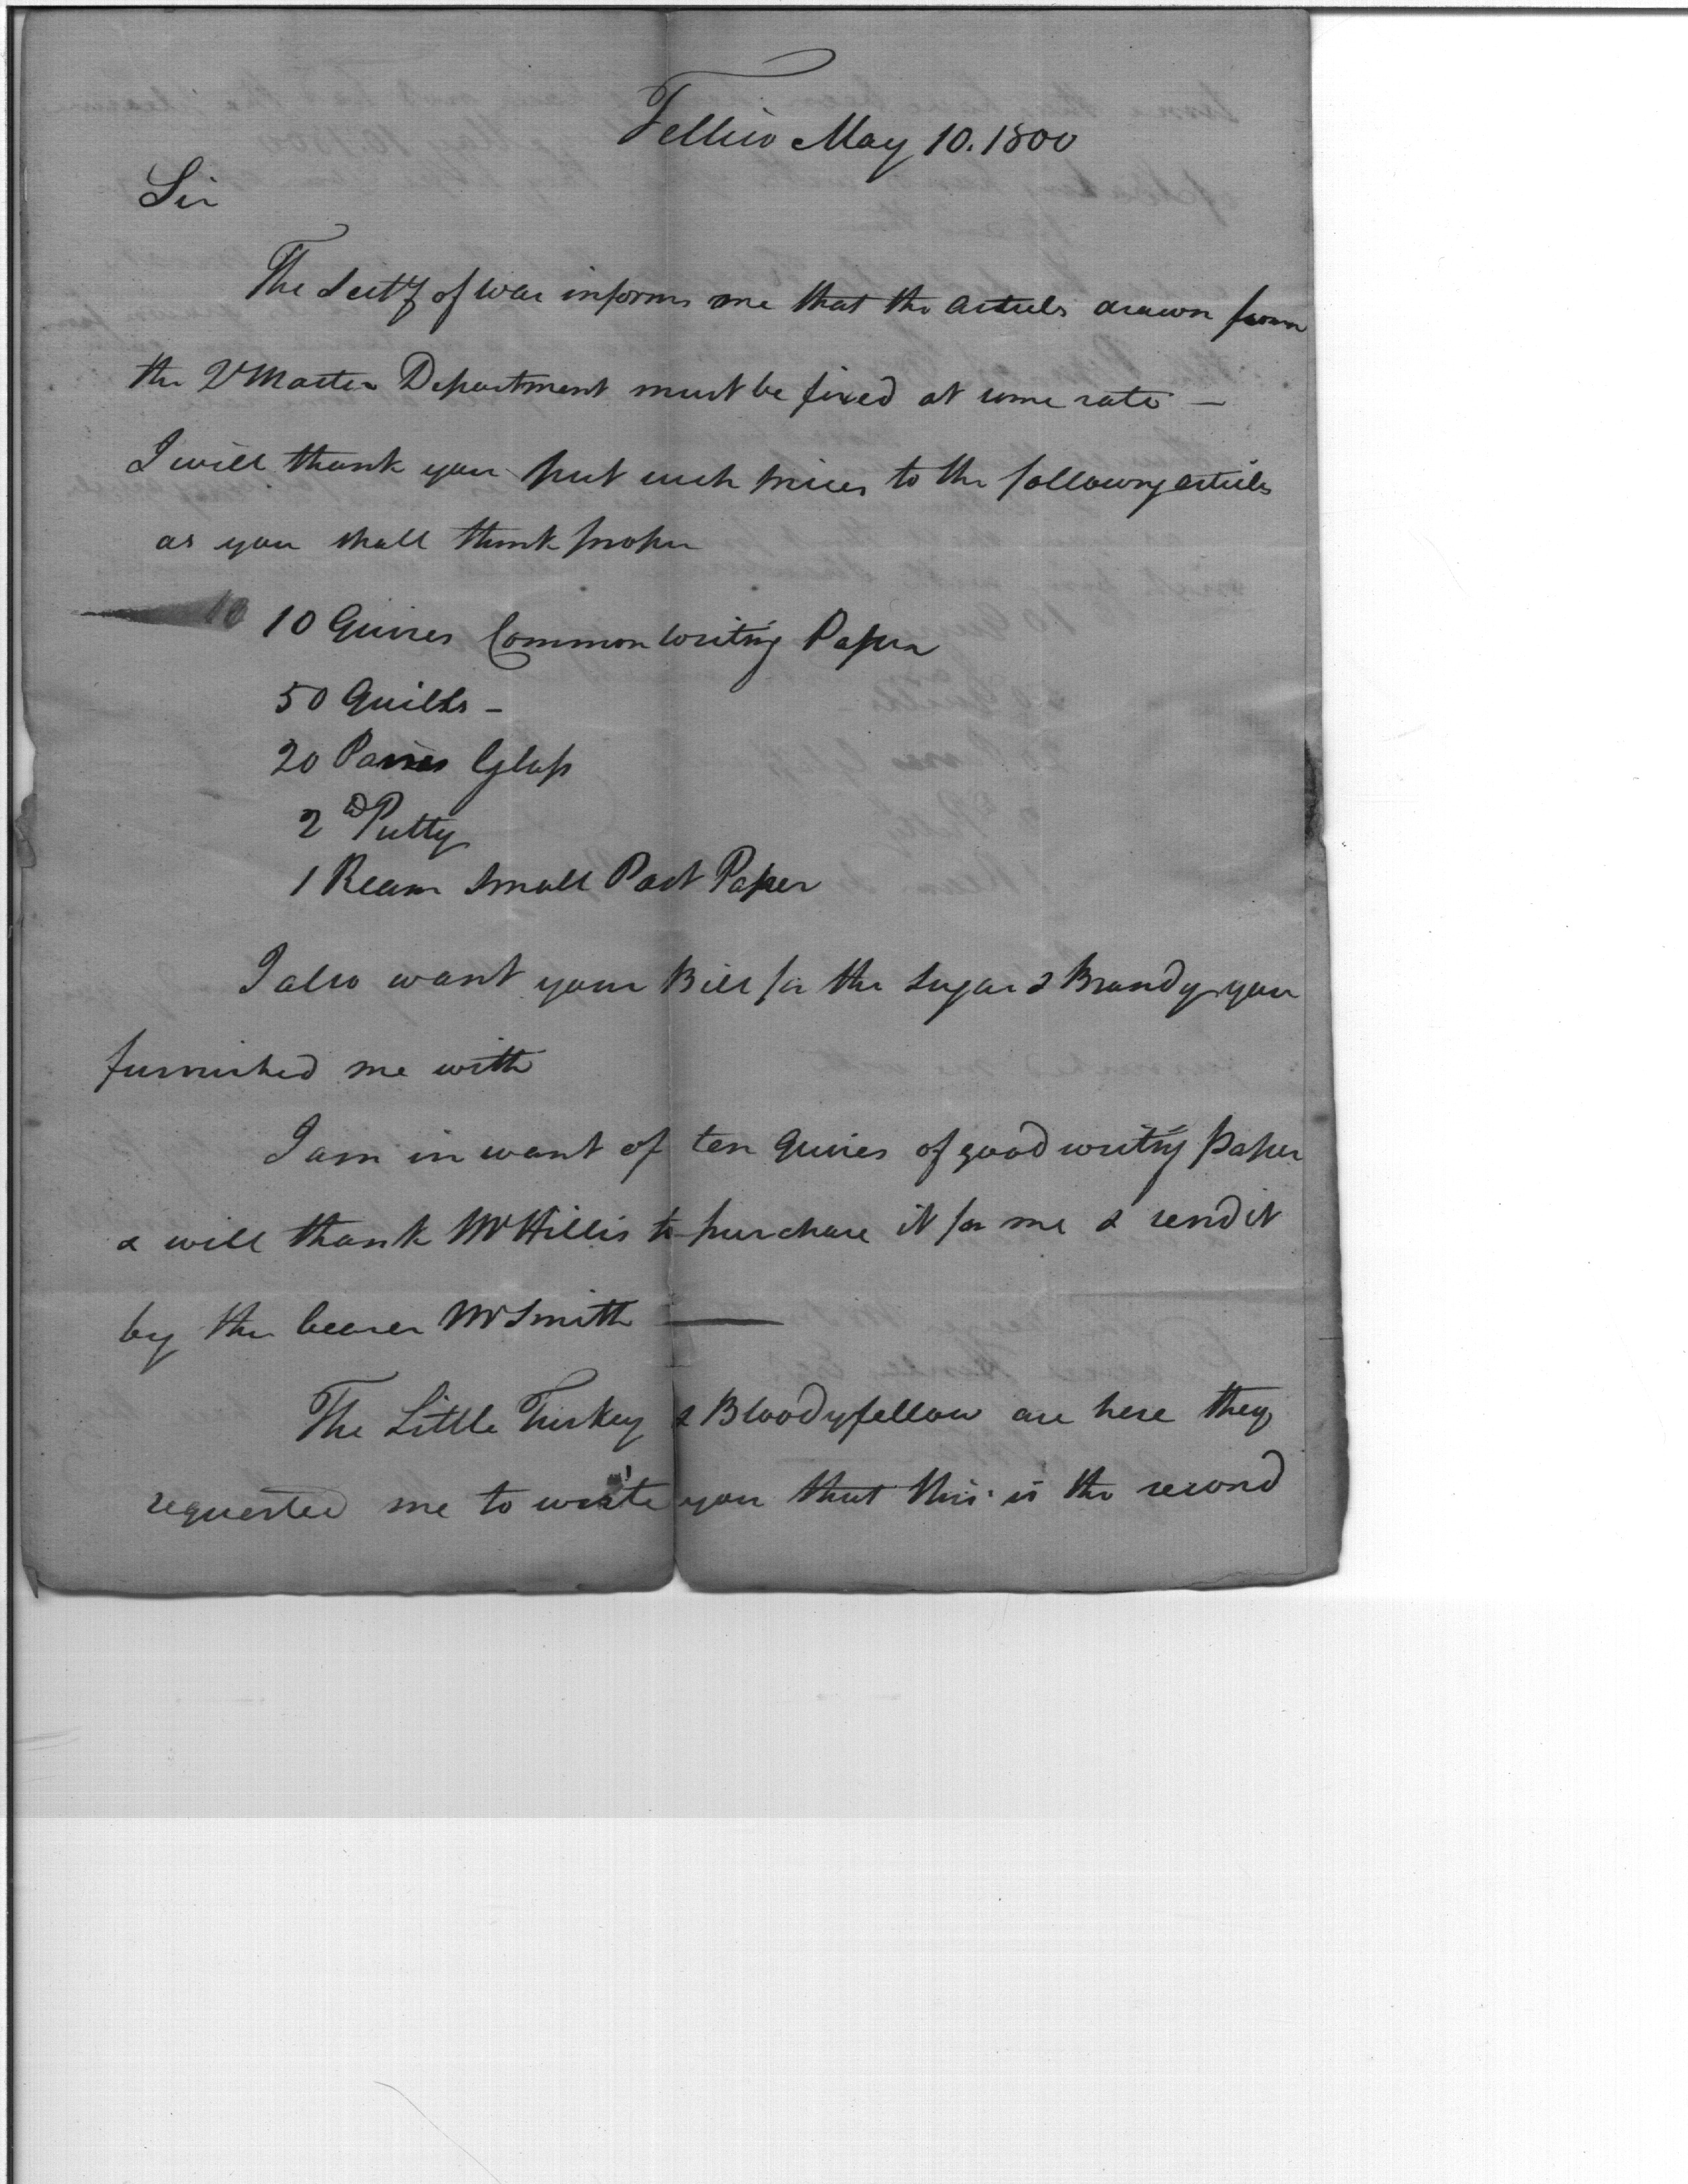 Tellico May 10. 1800
Sir
The Secty of War informs me that the articles drawn from
the QMaster Department must be fixed at some rate —
I will thank you put such prices to the following articles
as you shall think proper
10 Quires Common writing Paper
50 Quills -
20 Panes Glass
2 lb Putty
1 Ream Small Post Paper
I also want your Bill for the Sugar & Brandy you
furnished me with
I am in want of ten quires of good writing paper
& will thank Mr Hillis to purchase it for me & send it
by the bearer Mr Smith —
The Little Turkey & Bloodyfellow are here they
requested me to write you that this is the second